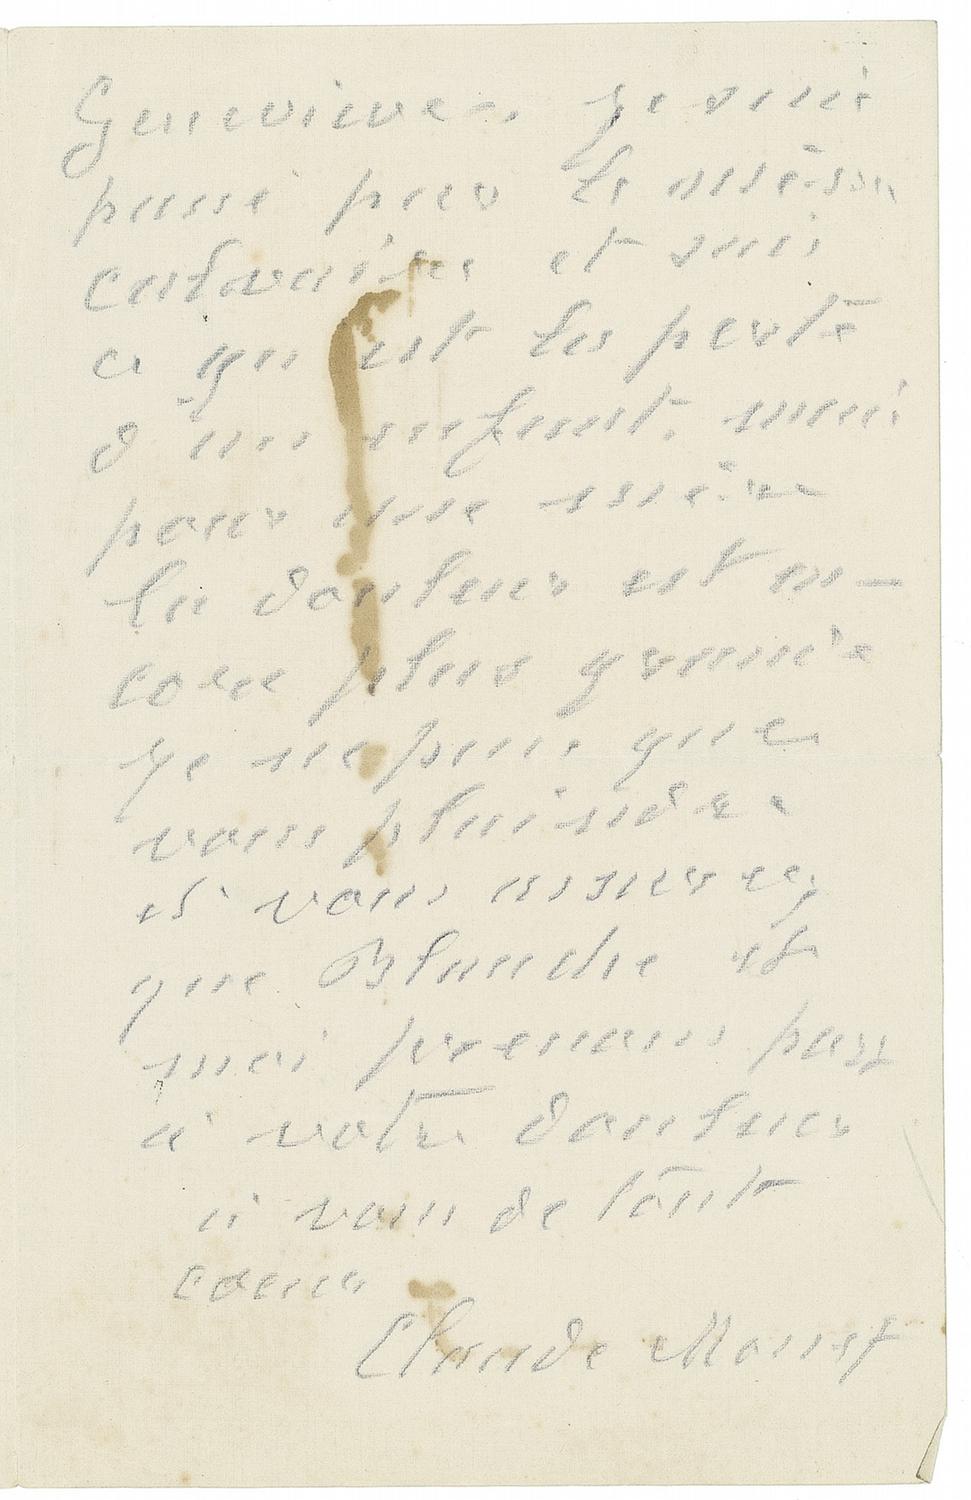 Geneviève. Je suis
passé par le même
calvaire et sais
ce qu'est la perte
d'un enfant. mais
pour une mère
la douleur est en-
core plus grande
Je ne puis que
vous plaindre
et vous assurez
que Blanche et
moi prenons part
à votre douleur
à vous de tout
coeur
Claude Monet